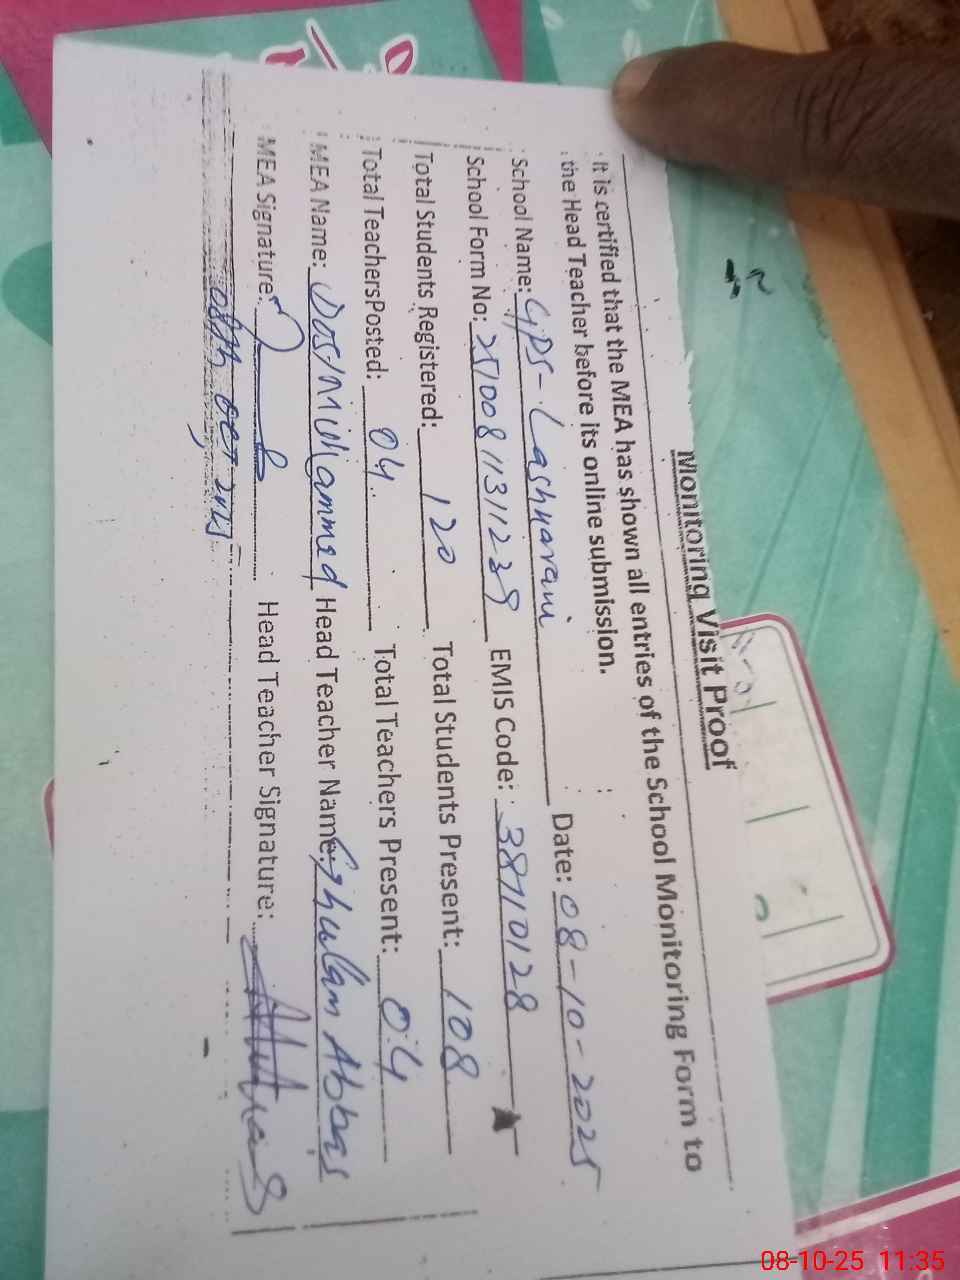 Monitoring Visit Proof
It is certified that the MEA has shown all entries of the School Monitoring Form to
the Head Teacher before its online submission.
School Name: GPS-Lasharani Date: 08-10-2025
School Form No: EMIS Code: 38710128
Total Students Registered: 120 Total Students Present: 108
Total Teachers Posted: 04 Total Teachers Present: 04
MEA Name: Dost Muhammed Head Teacher Name: Ghulam Abbas
MEA Signature: Head Teacher Signature:
08th OCT 2025
08-10-25 11:35